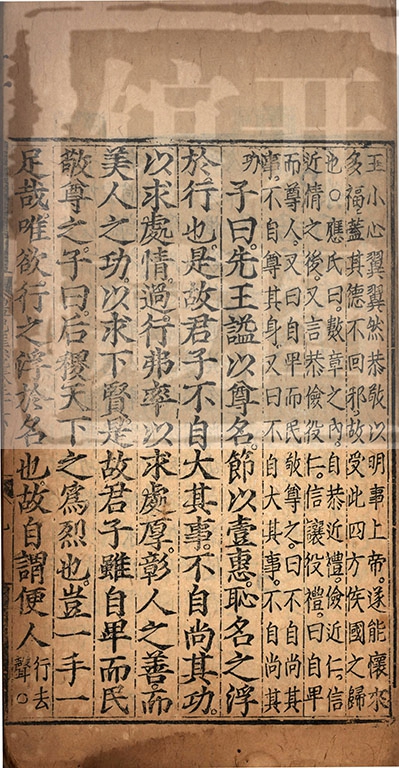 王小心翼翼然恭敬以明事上帝。遂能懷來
多福。蓋其德不回邪。故受此四方侯國之歸
也。○應氏曰。數章之內。自恭近禮。儉近仁。信
近情之後。又言恭儉役仁。信讓役禮。曰自卑
而尊人。又曰自卑而民敬尊之。曰不自尚其
事。不自尊其身。又曰不自大其事。不自尚其
功
子曰。先王謚以尊名。節以壹惠。恥名之浮
於行也。是故君子不自大其事。不自尚其功。
以求處情。過行弗率。以求處厚。彰人之善。而
美人之功。以求下賢。是故君子雖自卑而民
敬尊之。子曰。后稷天下之爲烈也。豈一手一
足哉。唯欲行之浮於名也。故自謂便人
行去
聲○